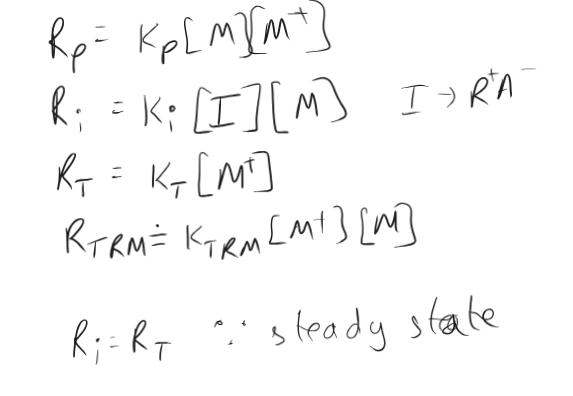 R_p = K_p[M][M⁺]
R_i = K_i[I][M] I → R⁺A⁻
R_T = K_T[M⁺]
R_TRM ≐ K_TRM[M⁺][M]
R_i = R_T ∵ steady state